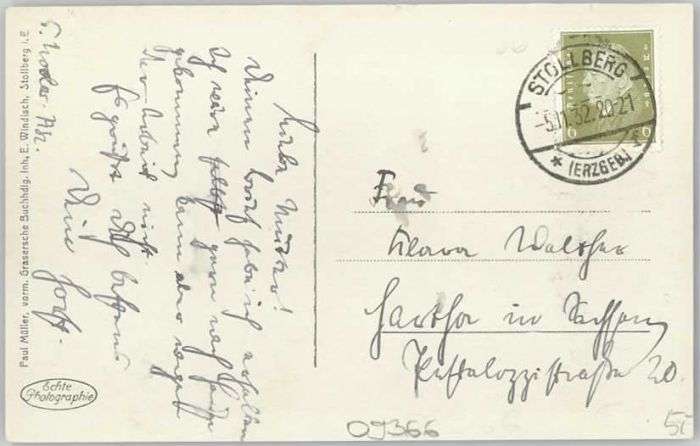 Liebe Mutter!
Deinen Brief habe ich erhalten
Ich wäre selbst gern nach Hause
gekommen, kann aber wegen
der Arbeit nicht
Es grüßt Dich bestens
Dein
Frau
Klara Walther
Hartha in Sachsen
Pestalozzistraße 20.
STOLLBERG
-5.11.32.20-21
* (ERZGEB.)
6 6
Paul Müller, vorm. Grasersche Buchhdlg. Inh. E. Windisch, Stollberg i. E.
Echte
Photographie
09366